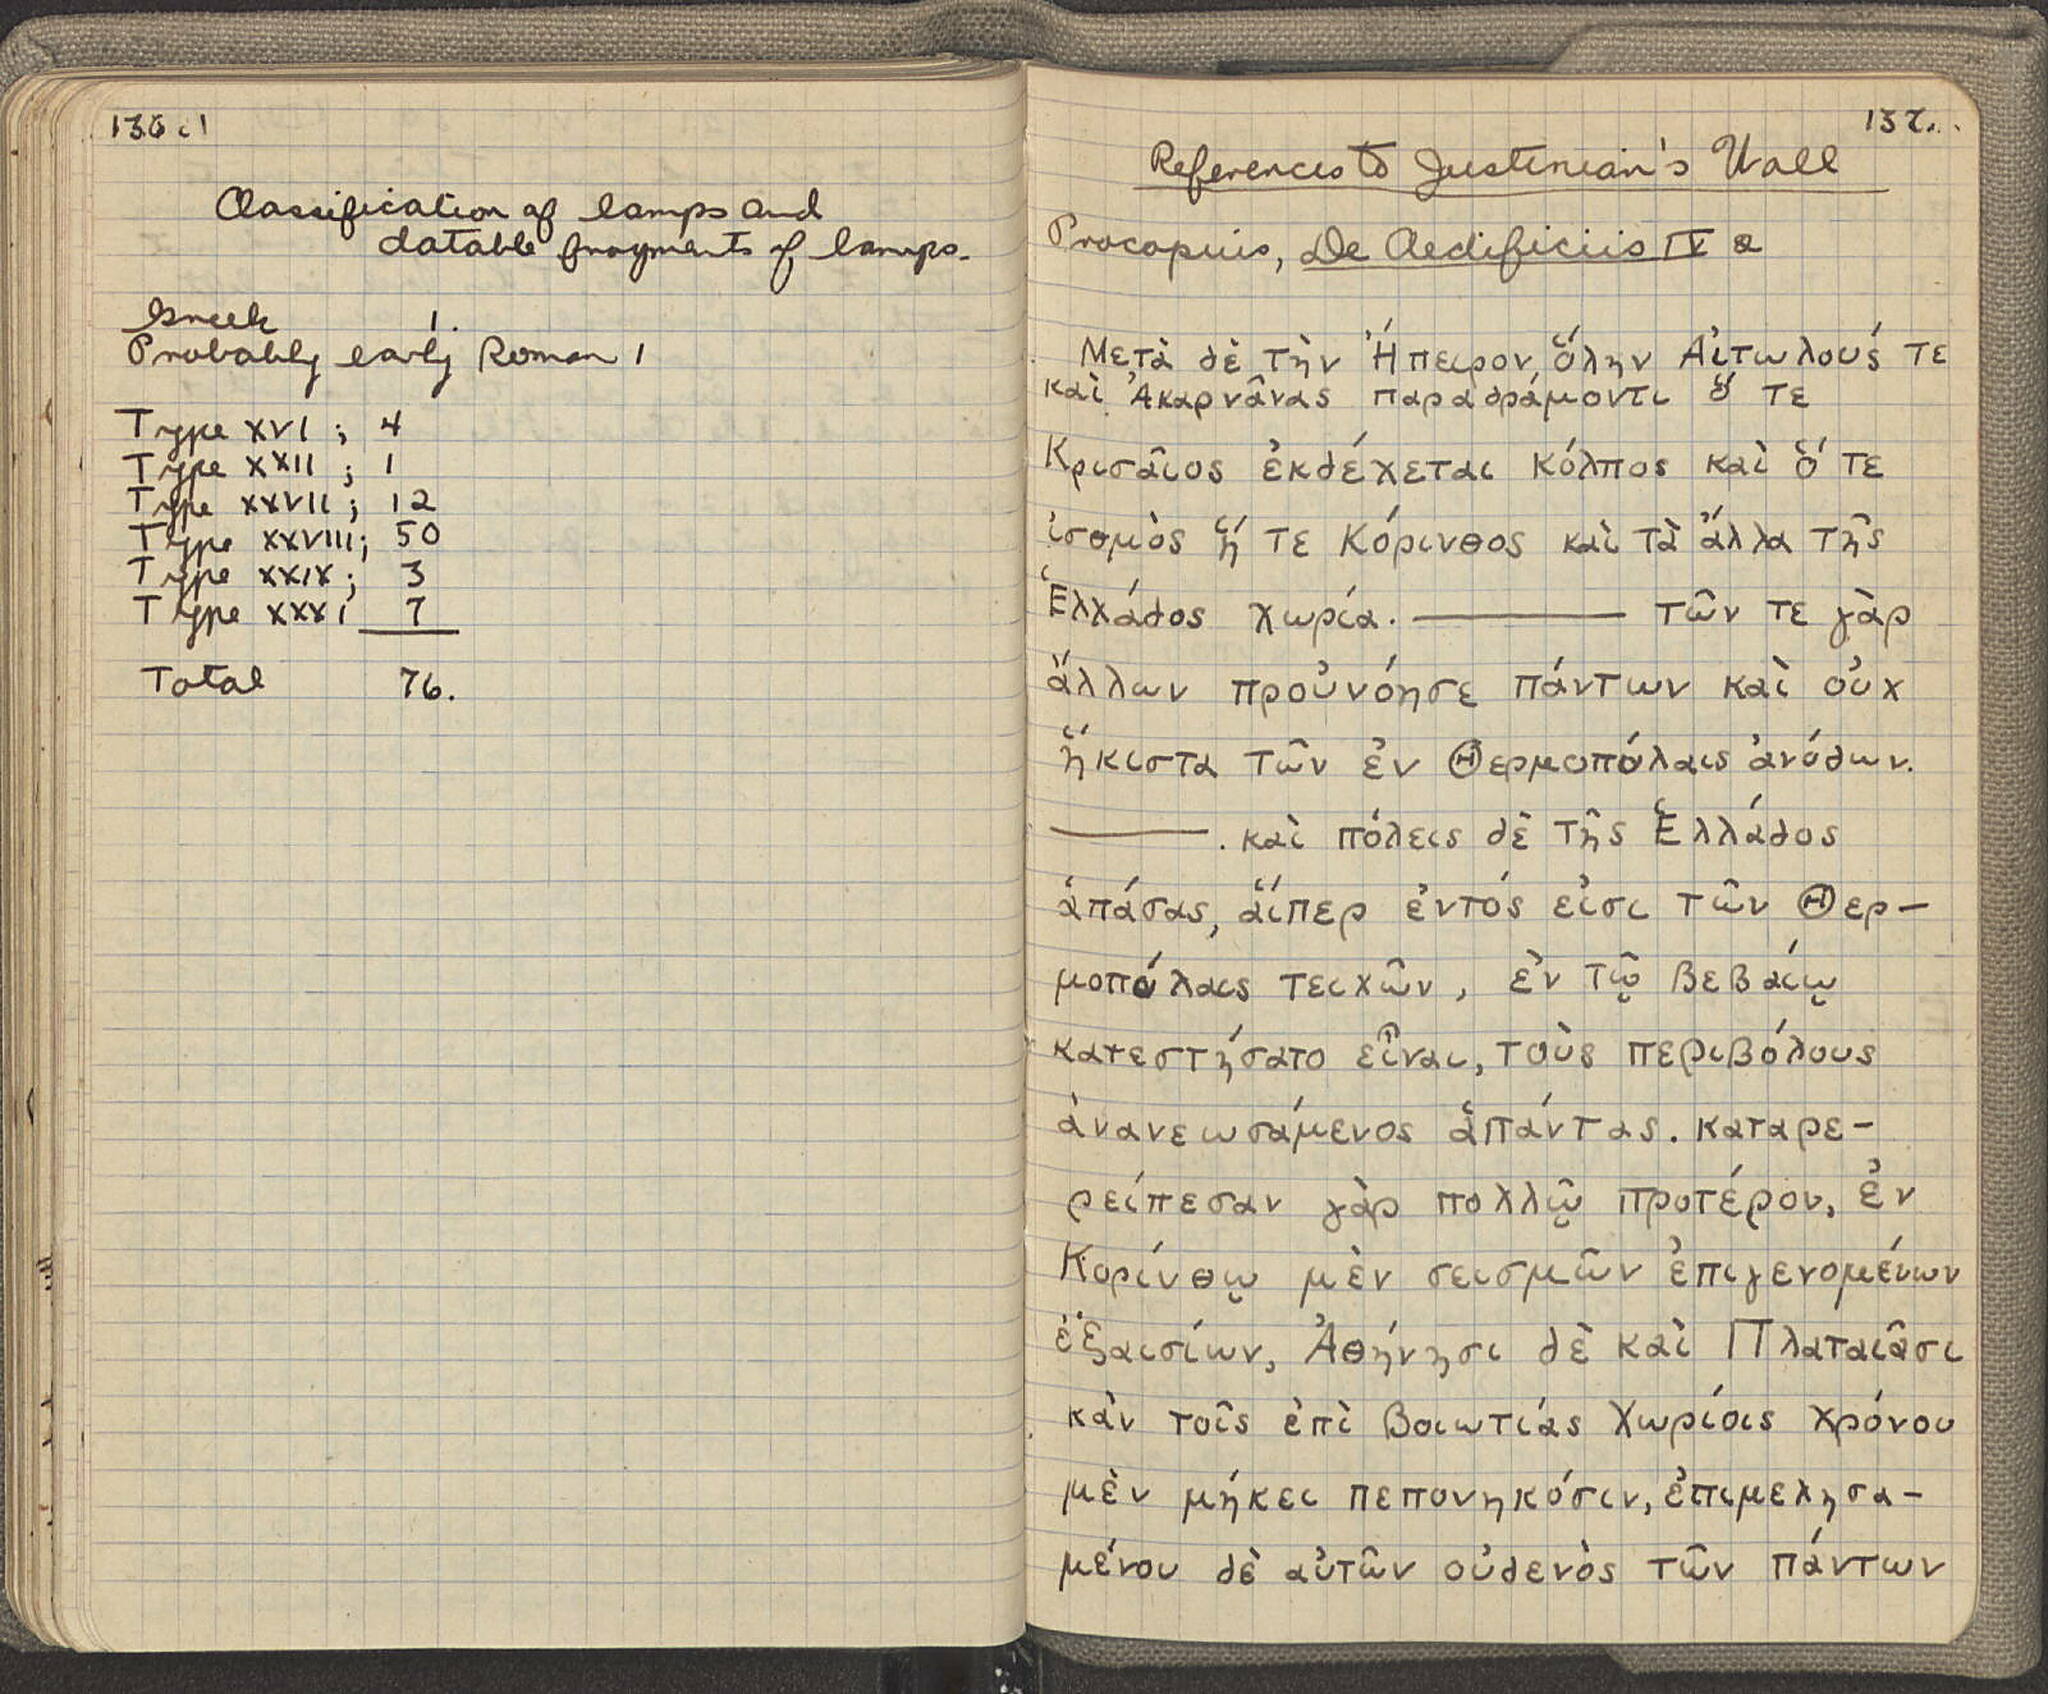 136.
Classification of lamps and
datable fragments of lamps.
Greek 1.
Probably early Roman 1
Type XVI ; 4
Type XXII ; 1
Type XXVII ; 12
Type XXVIII; 50
Type XXIX ; 3
Type XXXI 7
Total 76.
137.
References to Justinian's Wall
Procopius, De Aedificiis IV 2
Μετὰ δὲ τὴν Ἤπειρον, ὅλην Αἰτωλούς τε
καὶ Ἀκαρνᾶνας παραδράμοντι ὅ τε
Κρισαῖος ἐκδέχεται κόλπος καὶ ὅ τε
ἰσθμὸς ἥ τε Κόρινθος καὶ τὰ ἄλλα τῆς
Ἑλλάδος χωρία. ——— τῶν τε γὰρ
ἄλλων προὐνόησε πάντων καὶ οὐχ
ἥκιστα τῶν ἐν Θερμοπύλαις ἀνόδων.
———. καὶ πόλεις δὲ τῆς Ἑλλάδος
ἁπάσας, αἵπερ ἐντός εἰσι τῶν Θερ-
μοπύλαις τειχῶν, ἐν τῷ βεβαίῳ
κατεστήσατο εἶναι, τοὺς περιβόλους
ἀνανεωσάμενος ἁπάντας. καταρε-
ρείπεσαν γὰρ πολλῷ προτέρον, ἐν
Κορίνθῳ μὲν σεισμῶν ἐπιγενομένων
ἐξαισίων, Ἀθήνησι δὲ καὶ Πλαταιᾶσι
κἀν τοῖς ἐπὶ Βοιωτίας χωρίοις χρόνου
μὲν μήκει πεπονηκόσιν, ἐπιμελησα-
μένου δὲ αὐτῶν οὐδενὸς τῶν πάντων